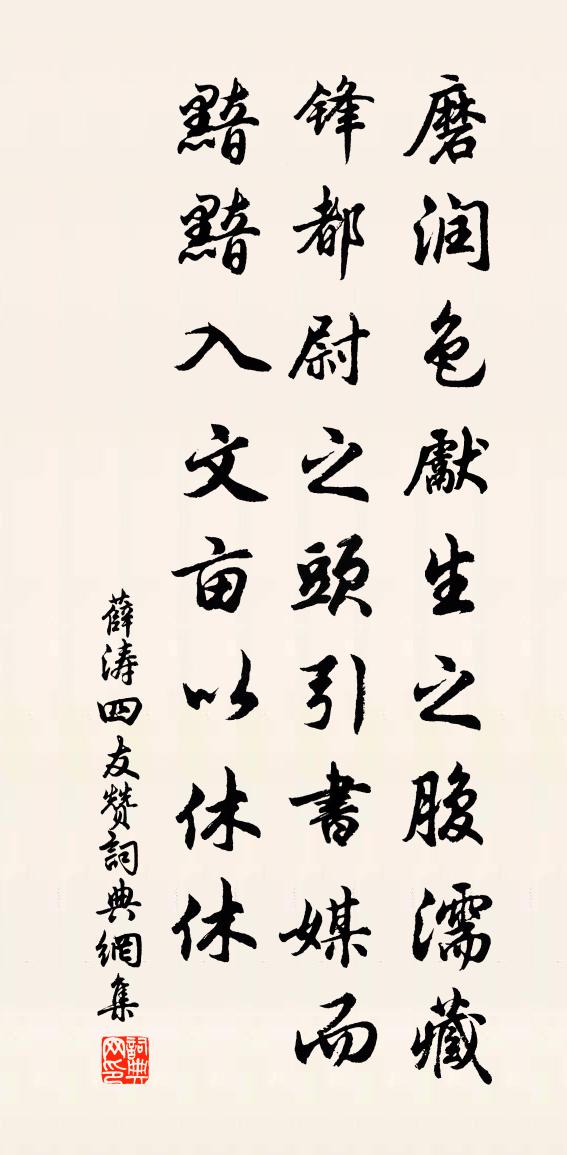 磨润色獻生之腹濡藏
锋都尉之頭引書媒而
黯黯入文亩以休休
薛涛四友赞詞典網集
詞典网印